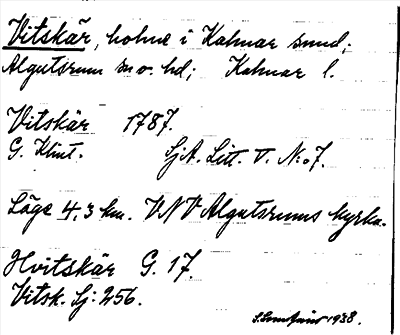 Vitskär, holme i Kalmar sund;
Algutsrum sn o. hd; Kalmar l.
Vitskär 1787.
G. Klint. SjA. Litt. V. N:o 7.
Läge 4,3 km. VNV Algutsrums kyrka.
Hvitskär G. 17.
Vitsk. Sj: 256.
1938.